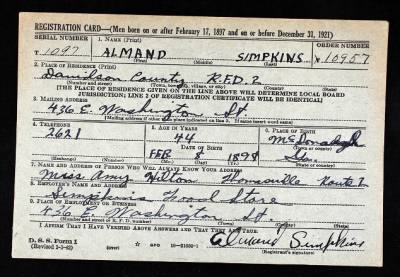 REGISTRATION CARD—(Men born on or after February 17, 1897 and on or before December 31, 1921)
SERIAL NUMBER 1. NAME (Print) ORDER NUMBER
T 1097 ALMAND SIMPKINS 10957
(First) (Middle) (Last)
2. PLACE OF RESIDENCE (Print)
Davidson County R.F.D. 2
(Number and street) (Town, township, village, or city) (County) (State)
[THE PLACE OF RESIDENCE GIVEN ON THE LINE ABOVE WILL DETERMINE LOCAL BOARD
JURISDICTION; LINE 2 OF REGISTRATION CERTIFICATE WILL BE IDENTICAL]
3. MAILING ADDRESS
436 E. Washington St
[Mailing address if other than place indicated on line 2. If same, insert word same]
4. TELEPHONE 5. AGE IN YEARS 6. PLACE OF BIRTH
2621 44 McDonough
DATE OF BIRTH
FEB 8 1898 Ga.
(Exchange) (Number) (Mo.) (Day) (Yr.) (State or country)
7. NAME AND ADDRESS OF PERSON WHO WILL ALWAYS KNOW YOUR ADDRESS
Miss Amy Hilton Route 1
8. EMPLOYER'S NAME AND ADDRESS
Simpkins Food Store
9. PLACE OF EMPLOYMENT OR BUSINESS
436 E. Washington St.
(Number and street or R. F. D. number) (Town) (County) (State)
I AFFIRM THAT I HAVE VERIFIED ABOVE ANSWERS AND THAT THEY ARE TRUE.
D. S. S. Form 1
(Revised) (over) GPO Almand Simpkins
(Registrant's signature)